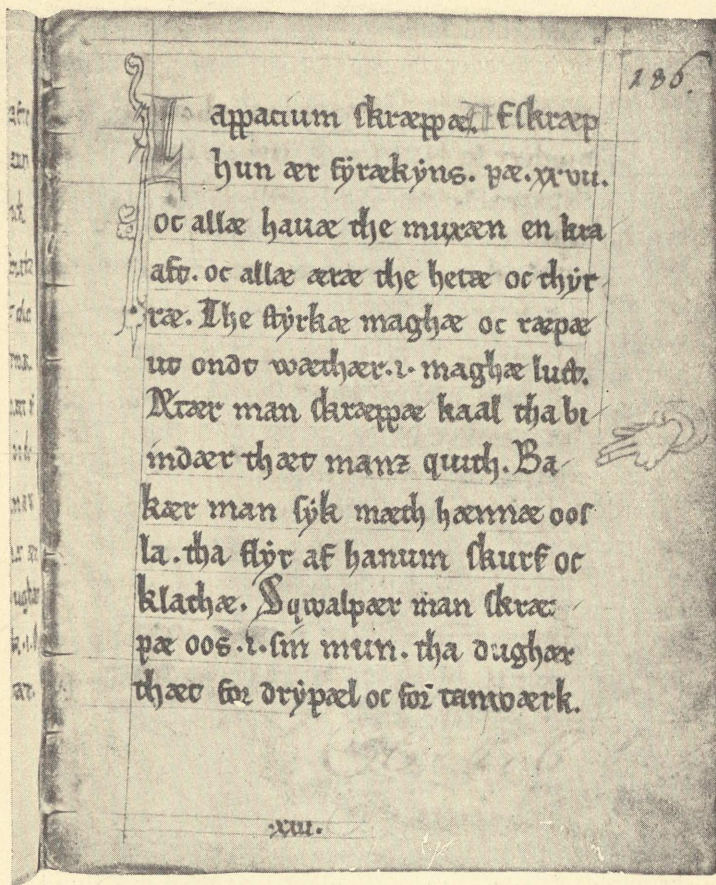 186.
Lappacium skræppæ. Eskræp
hun ær fyrækyns. pæ. xxvii.
oc allæ hauæ the muxæn en kra
aft. oc allæ æræ the hetæ oc thyr
ræ. The styrkæ maghæ oc ræpæ
ut ondt wæthær. i. maghæ luct.
Ætær man skræppæ kaal tha bi
indær thæt manz quith. Ba
kær man syk mæth hænnæ oos
la. tha flyr af hanum skurf oc
klathæ. Sqwalpær man skræp
pæ oos. i. sin mun. tha dughær
thæt for drypæl oc for tanwærk.
xiii.